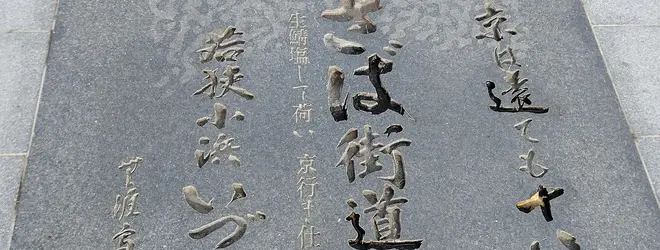 京は遠ても十八
さば街道
生鯖塩して荷い 京行き仕
若狭小浜 いづ